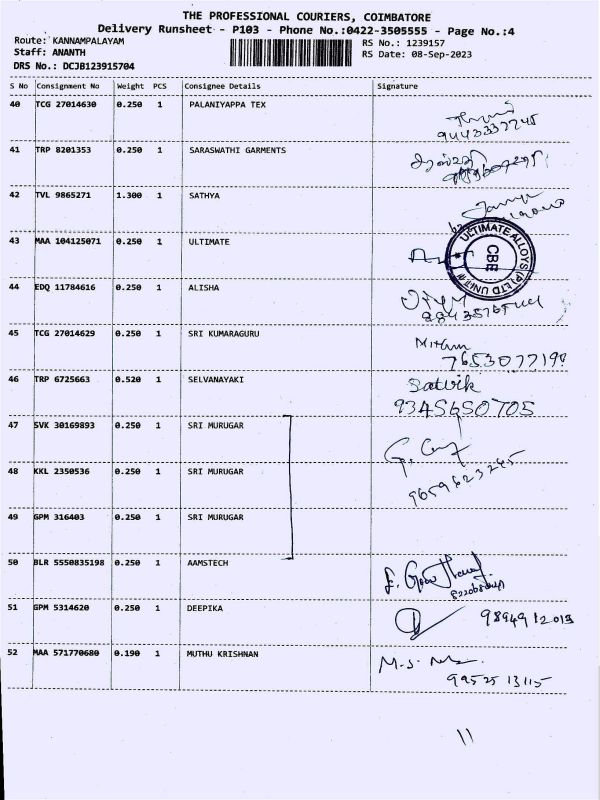 THE PROFESSIONAL COURIERS, COIMBATORE
Delivery Runsheet - P103 - Phone No.:0422-3505555 - Page No.:4
Route: KANNAMPALAYAM RS No.: 1239157
Staff: ANANTH RS Date: 08-Sep-2023
DRS No.: DCJB123915704
S No Consignment No Weight PCS Consignee Details Signature
40 TCG 27014630 0.250 1 PALANIYAPPA TEX
9443337245
41 TRP 8201353 0.250 1 SARASWATHI GARMENTS
42 TVL 9865271 1.300 1 SATHYA
43 MAA 104125071 0.250 1 ULTIMATE
ULTIMATE ALLOYS (P) LTD UNIT
CBE
44 EDQ 11784616 0.250 1 ALISHA
45 TCG 27014629 0.250 1 SRI KUMARAGURU
Mithun
7653077199
46 TRP 6725663 0.520 1 SELVANAYAKI
Satvik
9345650705
47 SVK 30169893 0.250 1 SRI MURUGAR
48 KKL 2350536 0.250 1 SRI MURUGAR
9659623245
49 GPM 316403 0.250 1 SRI MURUGAR
50 BLR 5550835198 0.250 1 AAMSTECH
51 GPM 5314620 0.250 1 DEEPIKA
9894912013
52 MAA 571770680 0.190 1 MUTHU KRISHNAN
M.S.
99525 13115
11